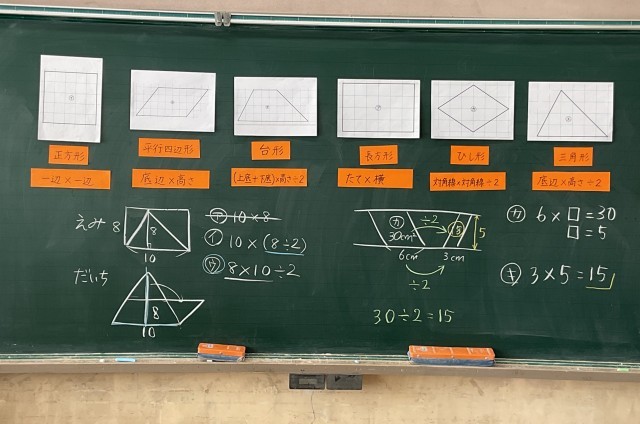 正方形
平行四辺形
台形
長方形
ひし形
三角形
一辺×一辺
底辺×高さ
(上底+下底)×高さ÷2
たて×横
対角線×対角線÷2
底辺×高さ÷2
えみ 8
8
10
㋐ 10×8
㋑ 10×(8÷2)
㋒ 8×10÷2
だいち
8
10
㋕
30cm²
÷2
㋖
5
6cm
3cm
÷2
30÷2=15
㋕ 6×□=30
□=5
㋖ 3×5=15